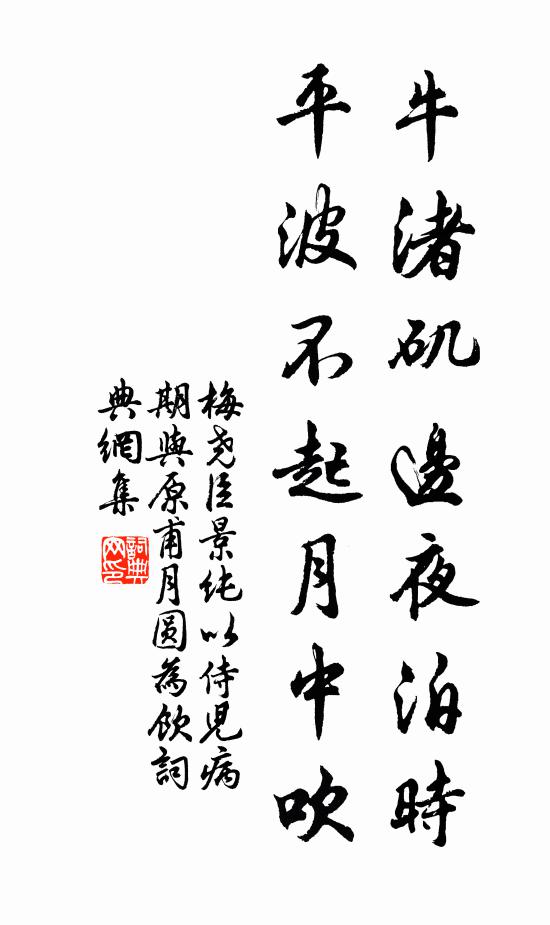 牛渚矶邊夜泊時
平波不起月中吹
梅尧臣景纯以侍児病
期與原甫月圆為飲詞
典網集
詞典
网印